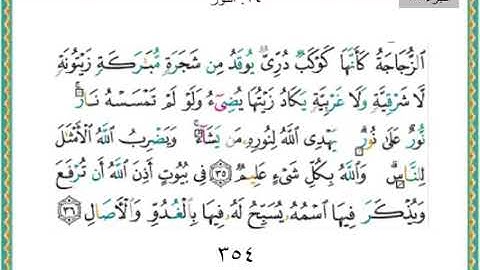 ٢٤. النور
ٱلزُّجَاجَةُ كَأَنَّهَا كَوْكَبٌ دُرِّيٌّ يُوقَدُ مِن شَجَرَةٍ مُّبَٰرَكَةٍ زَيْتُونَةٍ
لَّا شَرْقِيَّةٍ وَلَا غَرْبِيَّةٍ يَكَادُ زَيْتُهَا يُضِىٓءُ وَلَوْ لَمْ تَمْسَسْهُ نَارٌ ۚ
نُّورٌ عَلَىٰ نُورٍ ۗ يَهْدِى ٱللَّهُ لِنُورِهِۦ مَن يَشَآءُ ۚ وَيَضْرِبُ ٱللَّهُ ٱلْأَمْثَٰلَ
لِلنَّاسِ ۗ وَٱللَّهُ بِكُلِّ شَىْءٍ عَلِيمٌ ٣٥ فِى بُيُوتٍ أَذِنَ ٱللَّهُ أَن تُرْفَعَ
وَيُذْكَرَ فِيهَا ٱسْمُهُۥ يُسَبِّحُ لَهُۥ فِيهَا بِٱلْغُدُوِّ وَٱلْءَاصَالِ ٣٦
٣٥٤